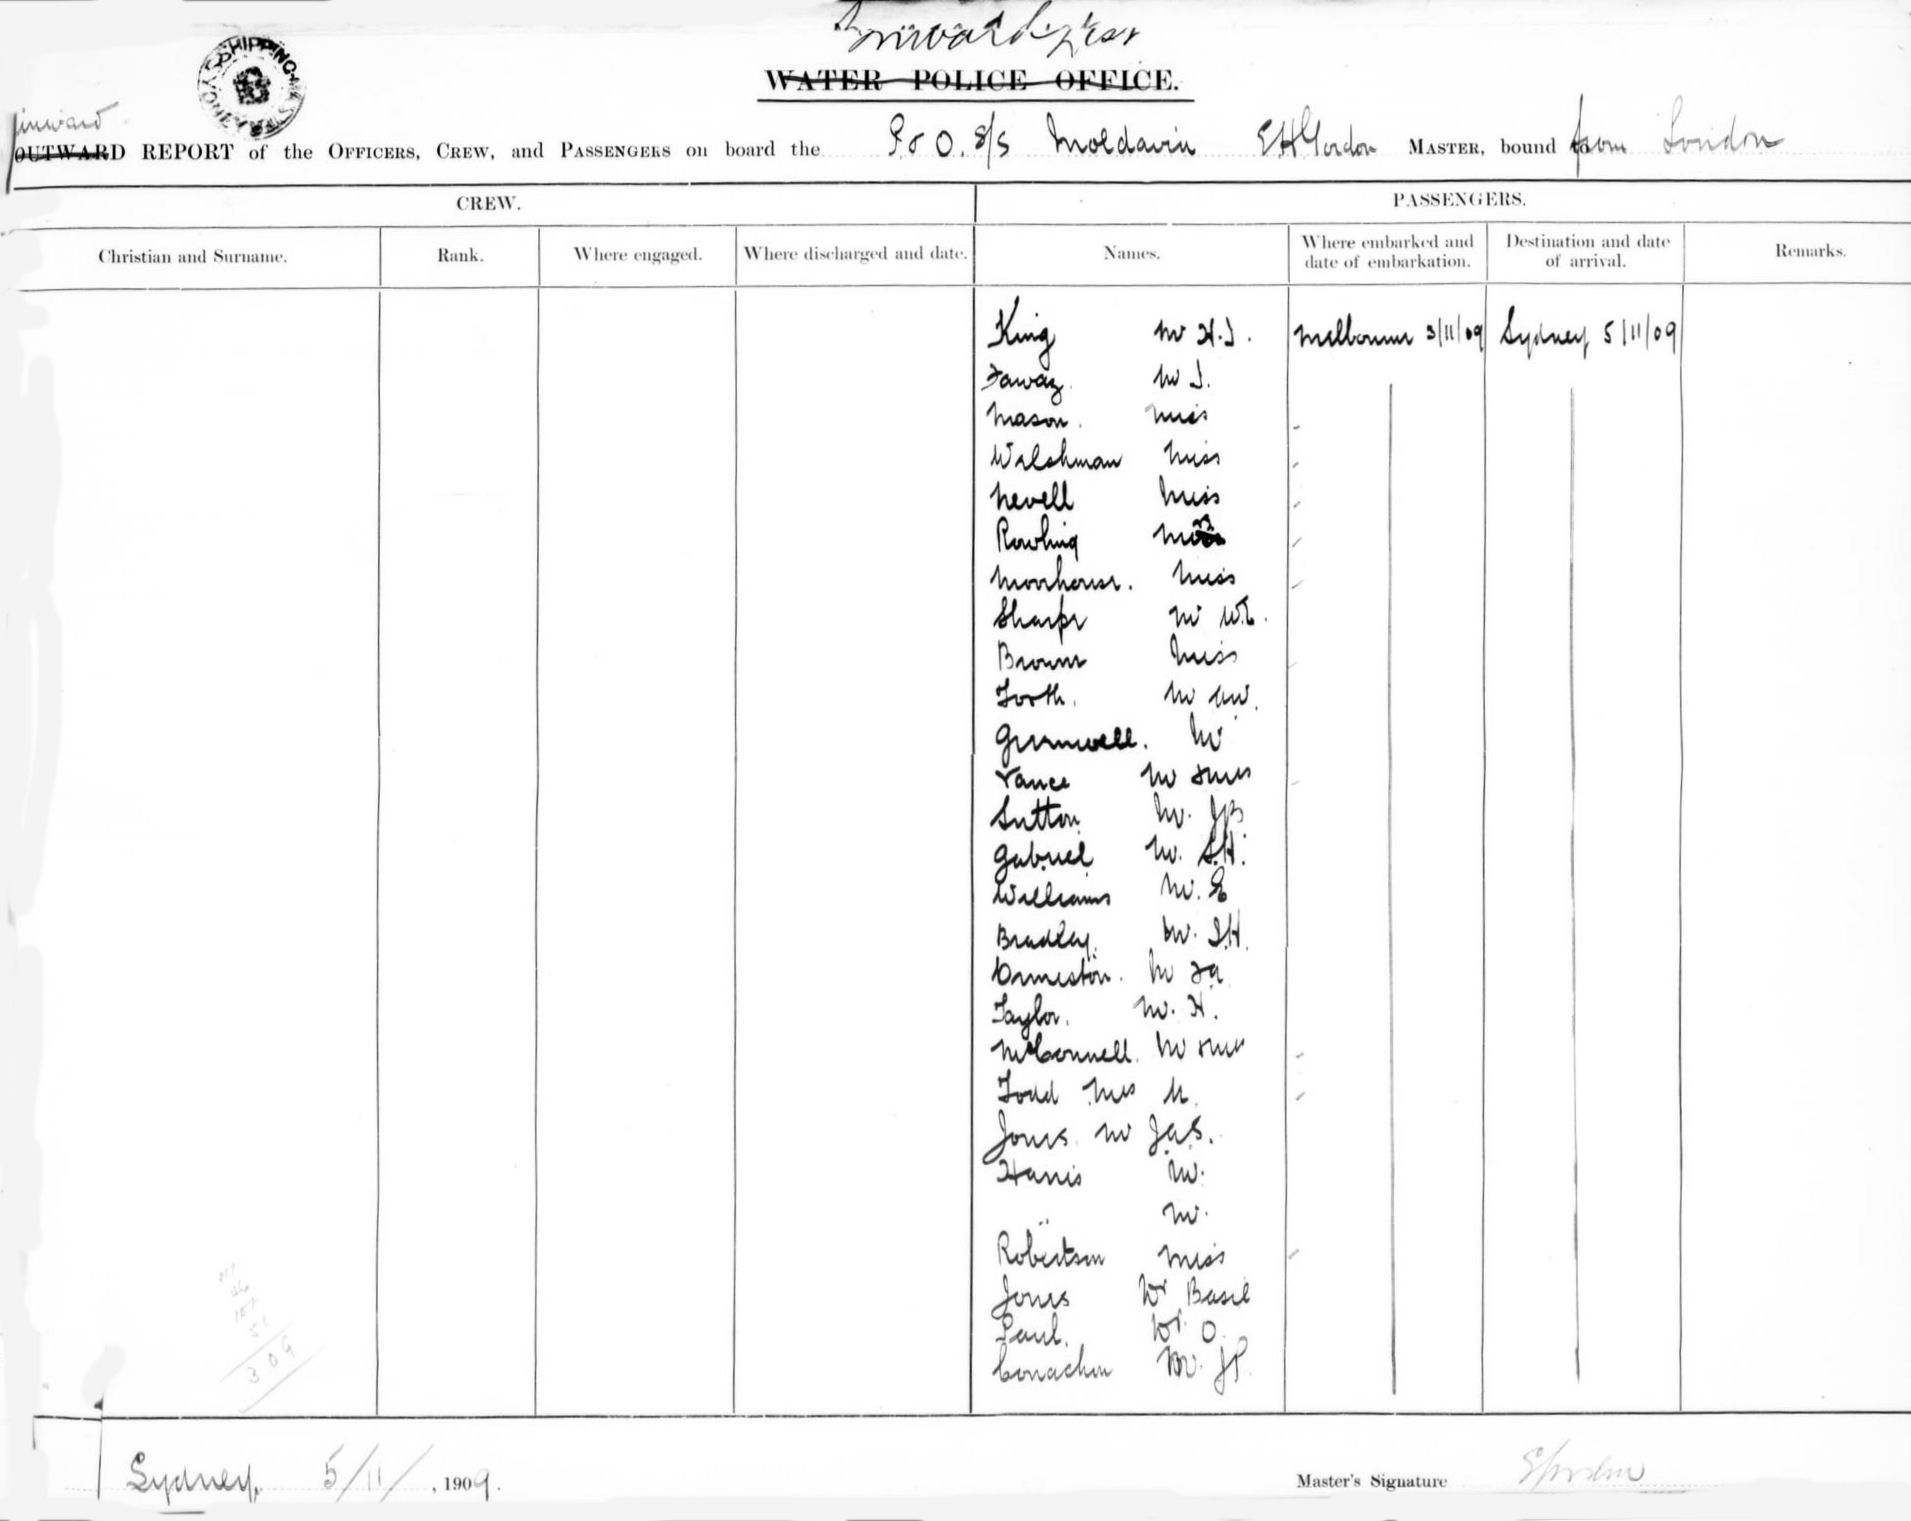 SHIPPING
WATER POLICE OFFICE.
inward
OUTWARD REPORT of the OFFICERS, CREW, and PASSENGERS on board the P & O. S/S Moldavia E H Gordon MASTER, bound from London
CREW. PASSENGERS.
Christian and Surname. Rank. Where engaged. Where discharged and date. Names. Where embarked and date of embarkation. Destination and date of arrival. Remarks.
King Mr H.J. Melbourne 3/11/09 Sydney 5/11/09
Fawaz Mr J.
Mason. Miss
Welshman Miss
Nevell Miss
Rowling
Moorhouse. Miss
Sharpe Mr W.E.
Browne Miss
Forth. Mr
Grunwell. Mr
Vance Mr & Mrs
Sutton Mr. JB
Gabriel Mr. S.H.
Williams Mr. E
Bradley. Mr. J.H.
Ormeston. Mr Fa
Taylor. Mr. H.
McConnell. Mr & Mrs
Todd Mrs M.
Jones Mr J.A.S.
Harris Mr.
" Mr.
Robertson Miss
Jones Mr Basil
Paul. Mr. O.
Conacher Mr. JP.
309
Sydney, 5/11/, 1909.
Master's Signature EGordon